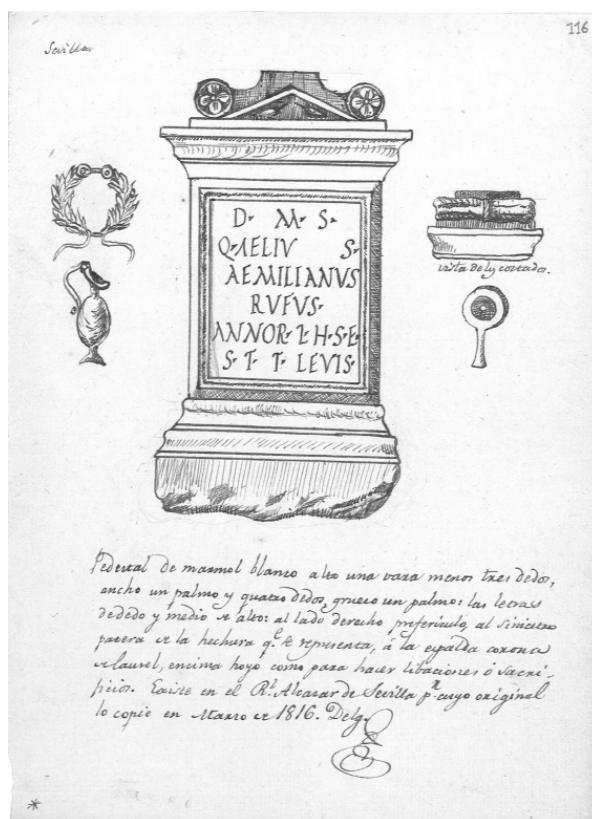 116
Sevilla
D· M· S·
Q·AELIV S·
AEMILIANVS
RVFVS·
ANNOR·Ł·H·S·E·
S· T· T· LEVIS·
vista de los costados.
Pedestal de marmol blanco alto una vara menos tres dedos,
ancho un palmo y quatro dedos, grueso un palmo: las letras
de dedo y medio de alto: al lado derecho prefericulo, al siniestro
patera de la hechura q.e se representa, á la espalda corona
de laurel, encima hoyo como para hacer libaciones ó sacri-
ficios. Existe en el R.l Alcazar de Sevilla p.r cuyo original
lo copie en Marzo de 1816. Delg.
*